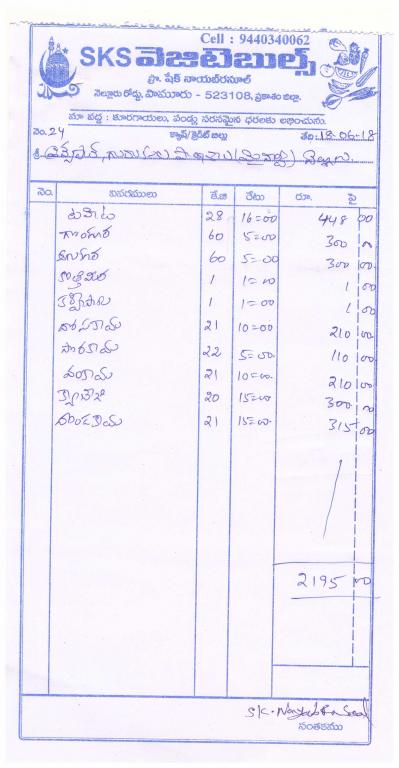 Cell : 9440340062
SKS వెజిటెబుల్స్
ప్రొ. షేక్ నాయబ్‌రసూల్
నెల్లూరు రోడ్డు, పామూరు - 523108, ప్రకాశం జిల్లా.
మా వద్ద : కూరగాయలు, పండ్లు సరసమైన ధరలకు లభించును.
నెం. 24 క్యాష్/క్రెడిట్ బిల్లు తేది: 18-06-18
శ్రీ
నెం. వివరములు కే.జి రేటు రూ. పై
టమోట 28 16=00 448 00
గోంగూర 60 5=00 300 00
60 5=00 300 00
కొత్తిమీర 1 1=00 1 00
కర్వేపాకు 1 1=00 1 00
దోసకాయ 21 10=00 210 00
సొరకాయ 22 5=00 110 00
వంకాయ 21 10=00 210 00
క్యాబేజి 20 15=00 300 00
దొండకాయ 21 15=00 315 00
2195 00
సంతకము